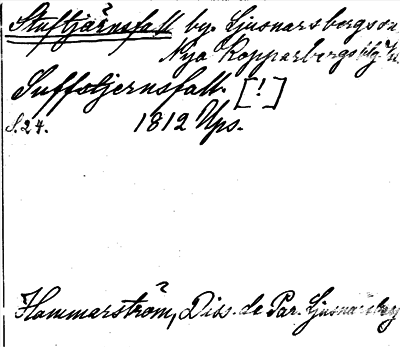 Stuftjärnsfall by. Ljusnarsbergs sn
Nya Kopparbergs
Suffotjernsfall [!]
S. 24. 1812 Ups.
Hammarström, Diss. de Par. Ljusnarsberg